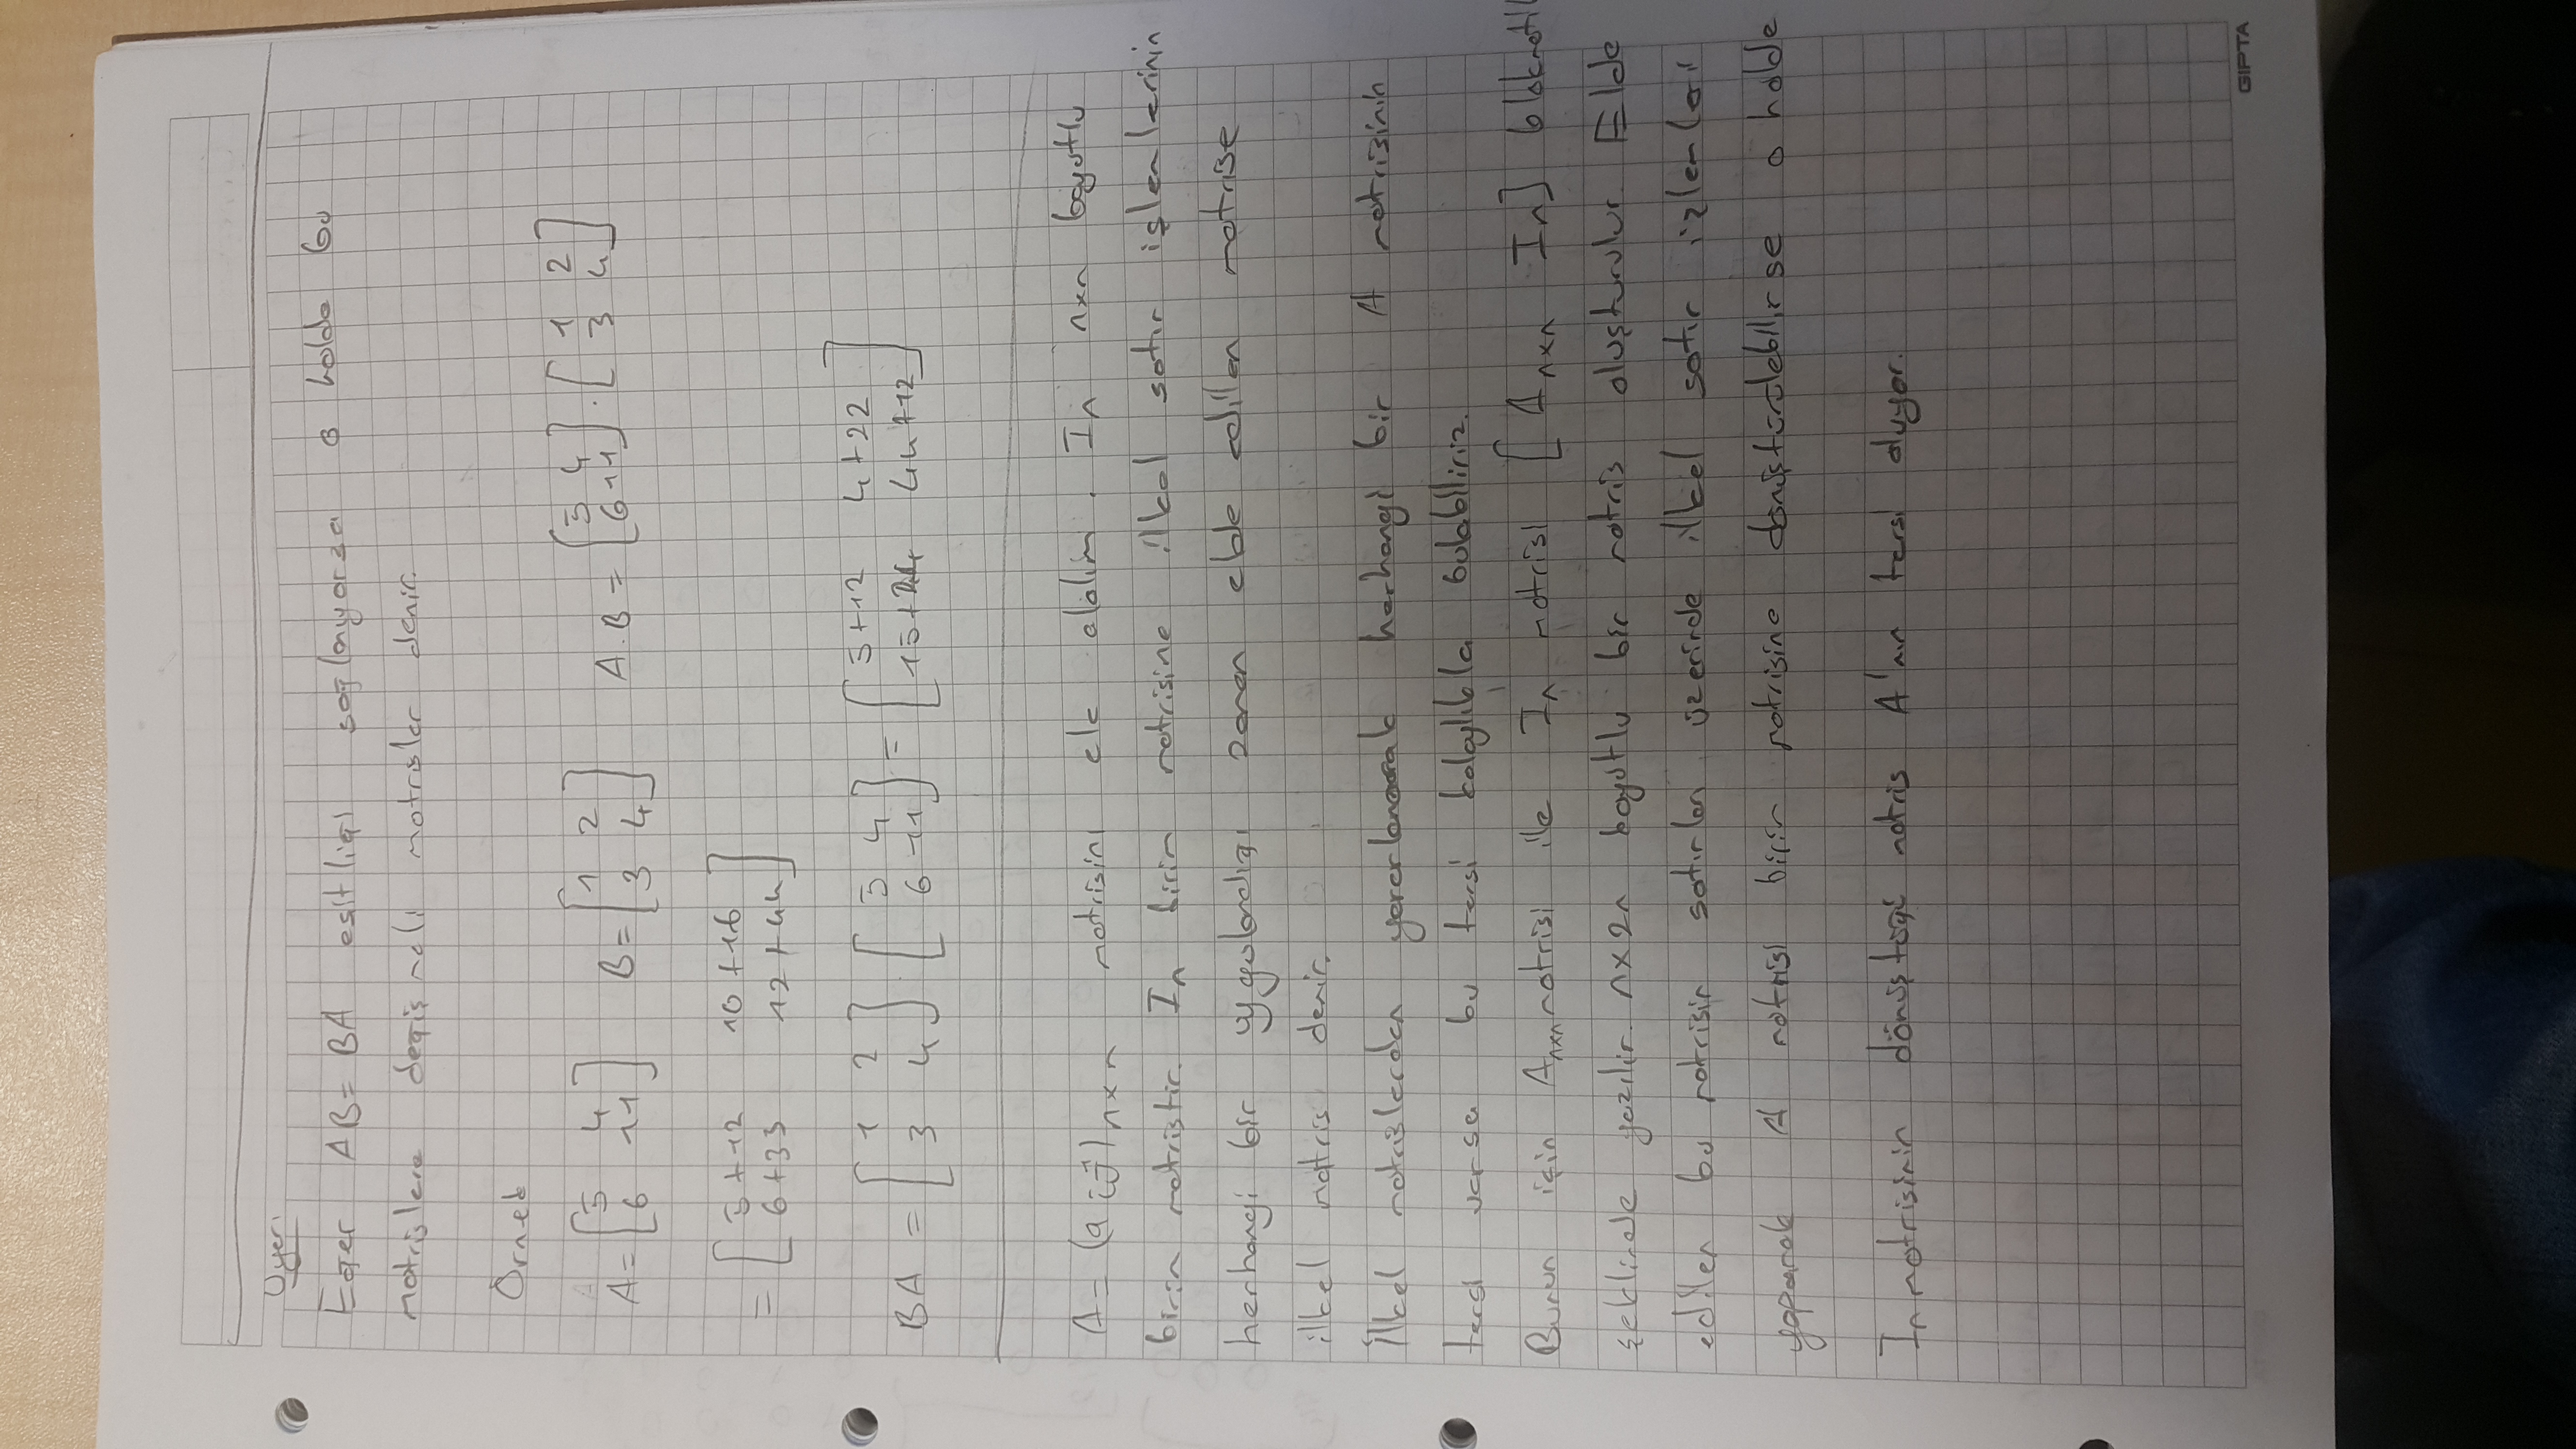 Uyarı
Eğer AB = BA eşitliği sağlanıyorsa o halde bu
matrislere değişmeli matrisler denir.
Örnek
A = [5 4; 6 11] B = [1 2; 3 4] A.B = [5 4; 6 11] . [1 2; 3 4]
= [5+12 10+16; 6+33 12+44]
BA = [1 2; 3 4] [5 4; 6 11] = [5+12 4+22; 15+24 44+12]
A = (aij)nxn matrisini ele alalım. In nxn boyutlu
birim matristir. In birim matrisine ilkel satır işlemlerinin
herhangi bir uygulandığı zaman elde edilen matrise
ilkel matris denir.
İlkel matrislerden yararlanarak herhangi bir A matrisinin
tersi varsa bu tersi kolaylıkla bulabiliriz.
Bunun için Anxn matrisi ile In matrisi [Anxn In]
şeklinde yazılır. nx2n boyutlu bir matris oluşturulur. Elde
edilen bu matrisin satırları üzerinde ilkel satır işlemleri
yaparak A matrisi birim matrisine dönüştürülebilirse o halde
In matrisinin dönüştüğü matris A'nın tersi oluyor.
GIPTA